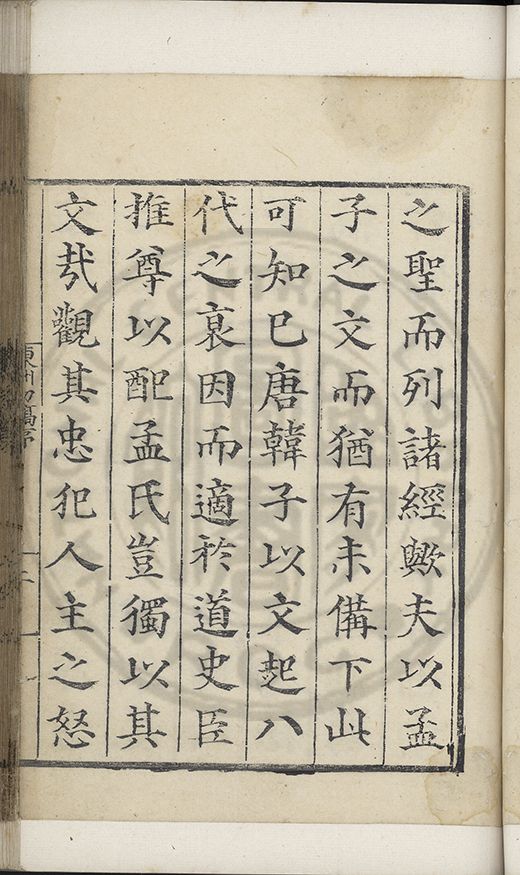 之聖而列諸經歟夫以孟
子之文而猶有未備下此
可知已唐韓子以文起八
代之衰因而適於道史臣
推尊以配孟氏豈獨以其
文哉觀其忠犯人主之怒
東川初稿序